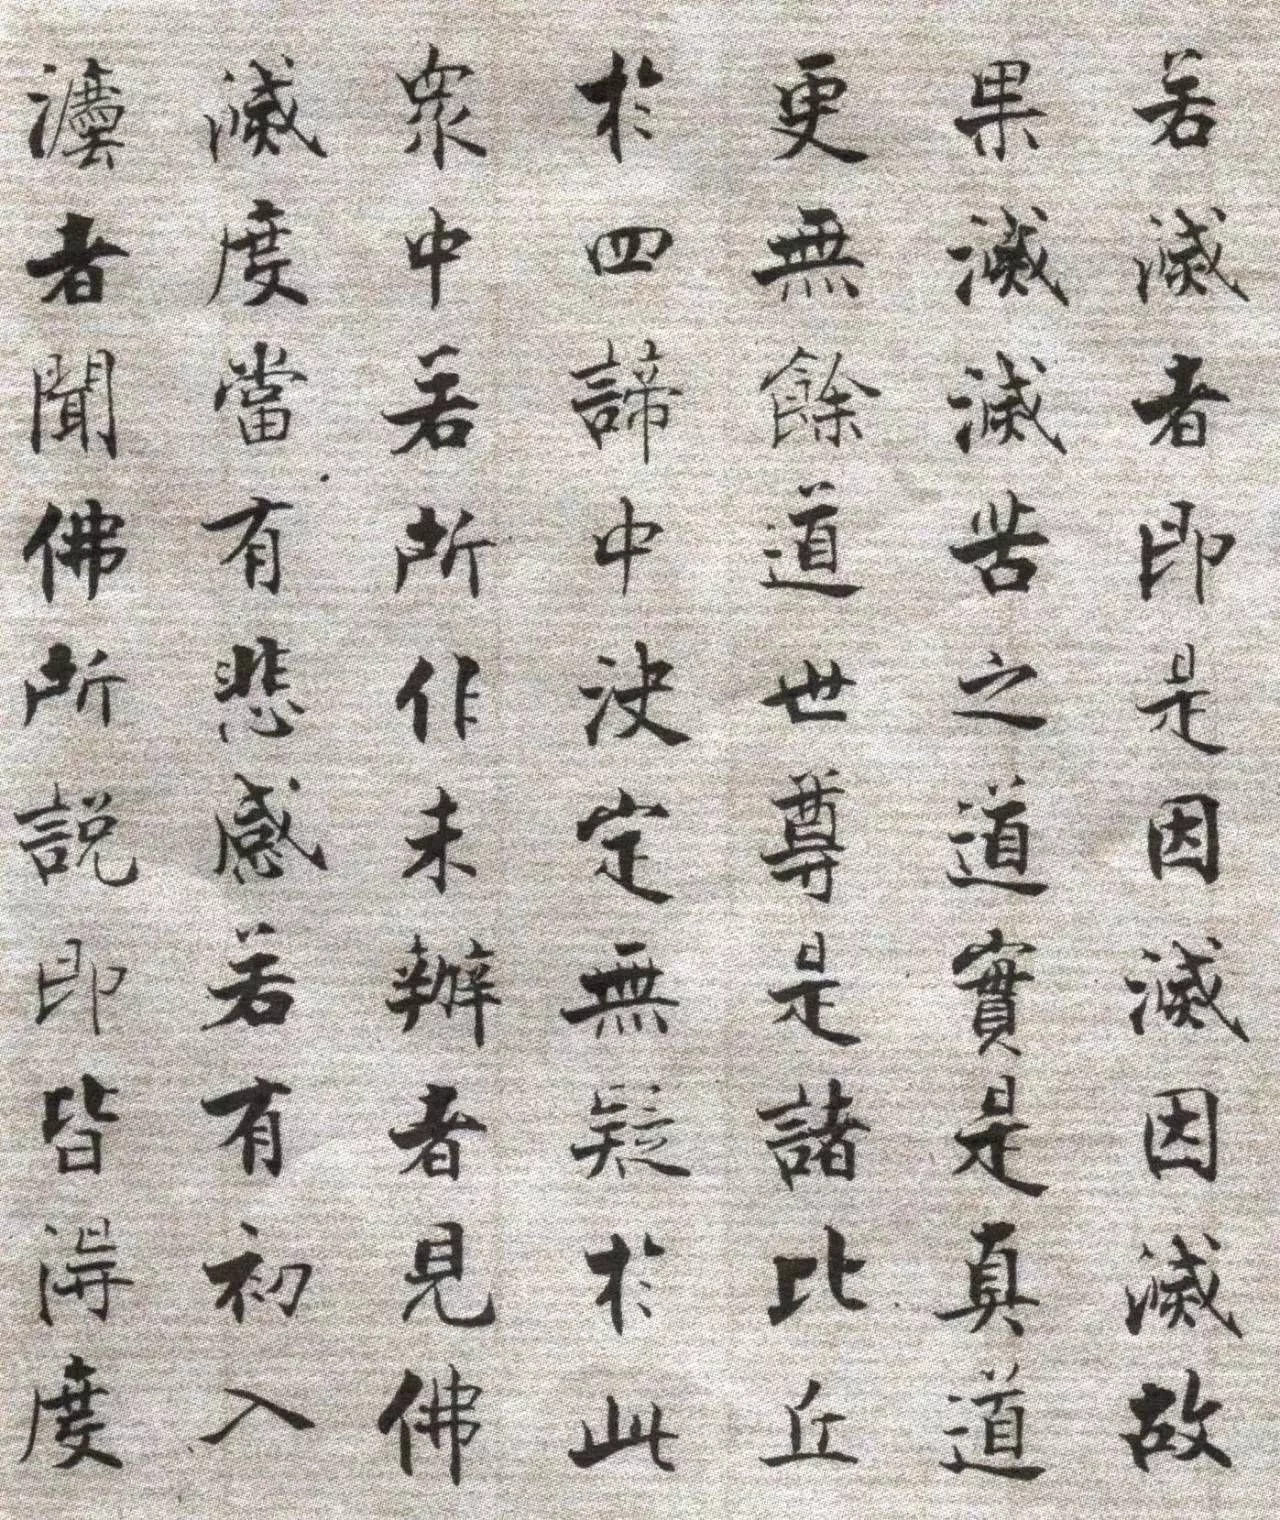 若滅者即是因滅因滅故
果滅滅苦之道實是真道
更無餘道世尊是諸比丘
於四諦中決定無疑於此
眾中若所作未辦者見佛
滅度當有悲感若有初入
灋者聞佛所說即皆得度